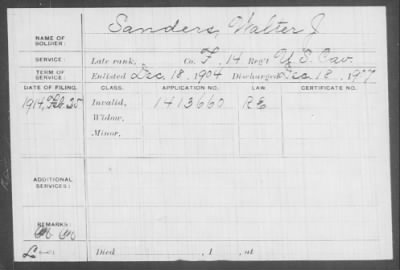 Sanders, Walter J
NAME OF SOLDIER:
SERVICE: Late rank, Co. F, 14 Reg't U.S. Cav.
TERM OF SERVICE: Enlisted Dec. 18, 1904 Discharged Dec. 18, 1907
DATE OF FILING. CLASS. APPLICATION NO. LAW. CERTIFICATE NO.
1914, Feb. 25 Invalid, 1413660
Widow,
Minor,
ADDITIONAL SERVICES:
REMARKS:
Died , 1 , at